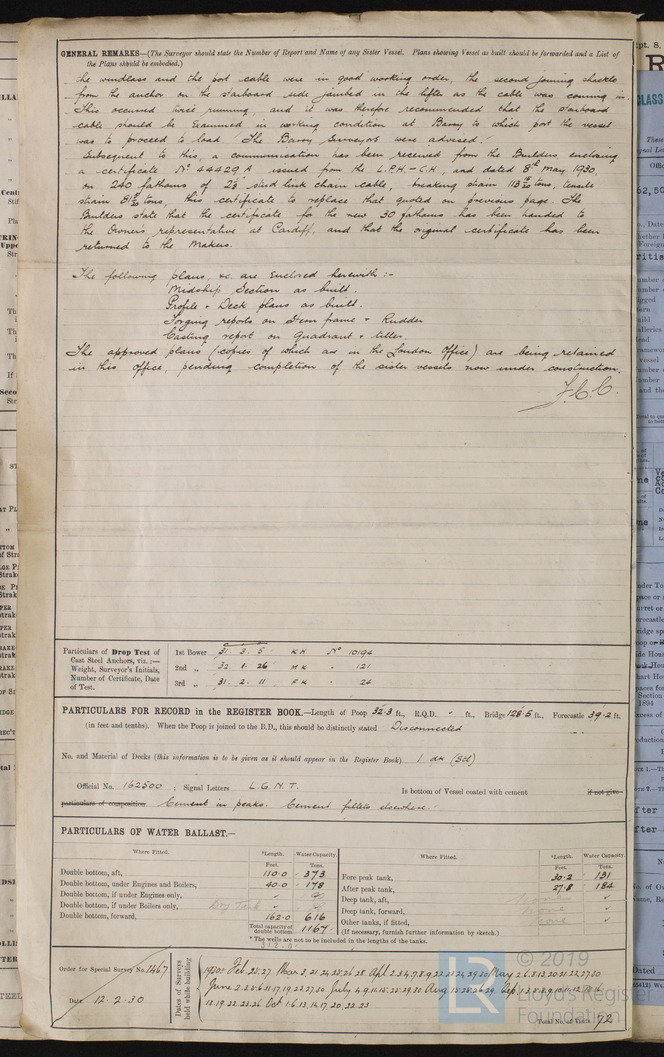 GENERAL REMARKS—(The Surveyor should state the Number of Report and Name of any Sister Vessel. Plans showing Vessel as built should be forwarded and a List of
the Plans should be embodied.)
the windlass and the port cable were in good working order, the second joining shackle
from the anchor on the starboard side jambed in the lifter as the cable was coming in.
This occurred twice running, and it was therefore recommended that the starboard
cable should be examined in working condition at Barry to which port the vessel
was to proceed to load. The Barry Surveyors were advised.
Subsequent to this, a communication has been received from the Builders, enclosing
a certificate No 44429 A issued from the L.P.H.-C.H, and dated 8th May 1930,
on 240 fathoms of stud link chain cable, breaking strain tons, tensile
strain tons, this certificate to replace that quoted on previous page. The
Builders state that the certificate for the new 30 fathoms has been handed to
the Owner's representative at Cardiff, and that the original certificate has been
returned to the Makers.
The following plans, &c. are Enclosed herewith :-
Midship Section as built.
Profile & Deck plans as built.
Forging reports on Stern frame & Rudder
Casting report on Quadrant & tiller
The approved plans (copies of which are in the London Office) are being retained
in this office, pending completion of the sister vessels now under construction.
Particulars of Drop Test of
Cast Steel Anchors, viz.:—
Weight, Surveyor's Initials,
Number of Certificate, Date
of Test.
1st Bower 31. 3. 5 KH No 10194
2nd „ 32. 1. 26 MK 121
3rd „ 31. 2. 11 FK 24
PARTICULARS FOR RECORD in the REGISTER BOOK.—Length of Poop 32.3 ft., R.Q.D. - ft., Bridge 128.5 ft., Forecastle 39.2 ft.
(in feet and tenths). When the Poop is joined to the B.D., this should be distinctly stated Disconnected
No. and Material of Decks (this information is to be given as it should appear in the Register Book) 1 dk (Stl)
Official No. 162500 ; Signal Letters L.G.N.T. Is bottom of Vessel coated with cement if not give
particulars of composition Cement in peaks. Cement fillets elsewhere.
PARTICULARS OF WATER BALLAST.—
Where Fitted. *Length. Water Capacity. Where Fitted. *Length. Water Capacity.
Feet. Tons. Feet. Tons.
Double bottom, aft, 110.0 373
Double bottom, under Engines and Boilers, 40.0 178
Double bottom, if under Engines only,
Double bottom, if under Boilers only,
Double bottom, forward, 162.0 616
Total capacity of double bottom 1167
Fore peak tank, 30.2 131
After peak tank, 27.8 184
Deep tank, aft,
Deep tank, forward,
Other tanks, if fitted,
(If necessary, furnish further information by sketch.)
* The wells are not to be included in the lengths of the tanks.
Order for Special Survey No. 1467
Date 12.2.30
Dates of Surveys
held while building
Total No. of Visits 92
© 2019
Lloyd's Register
Foundation